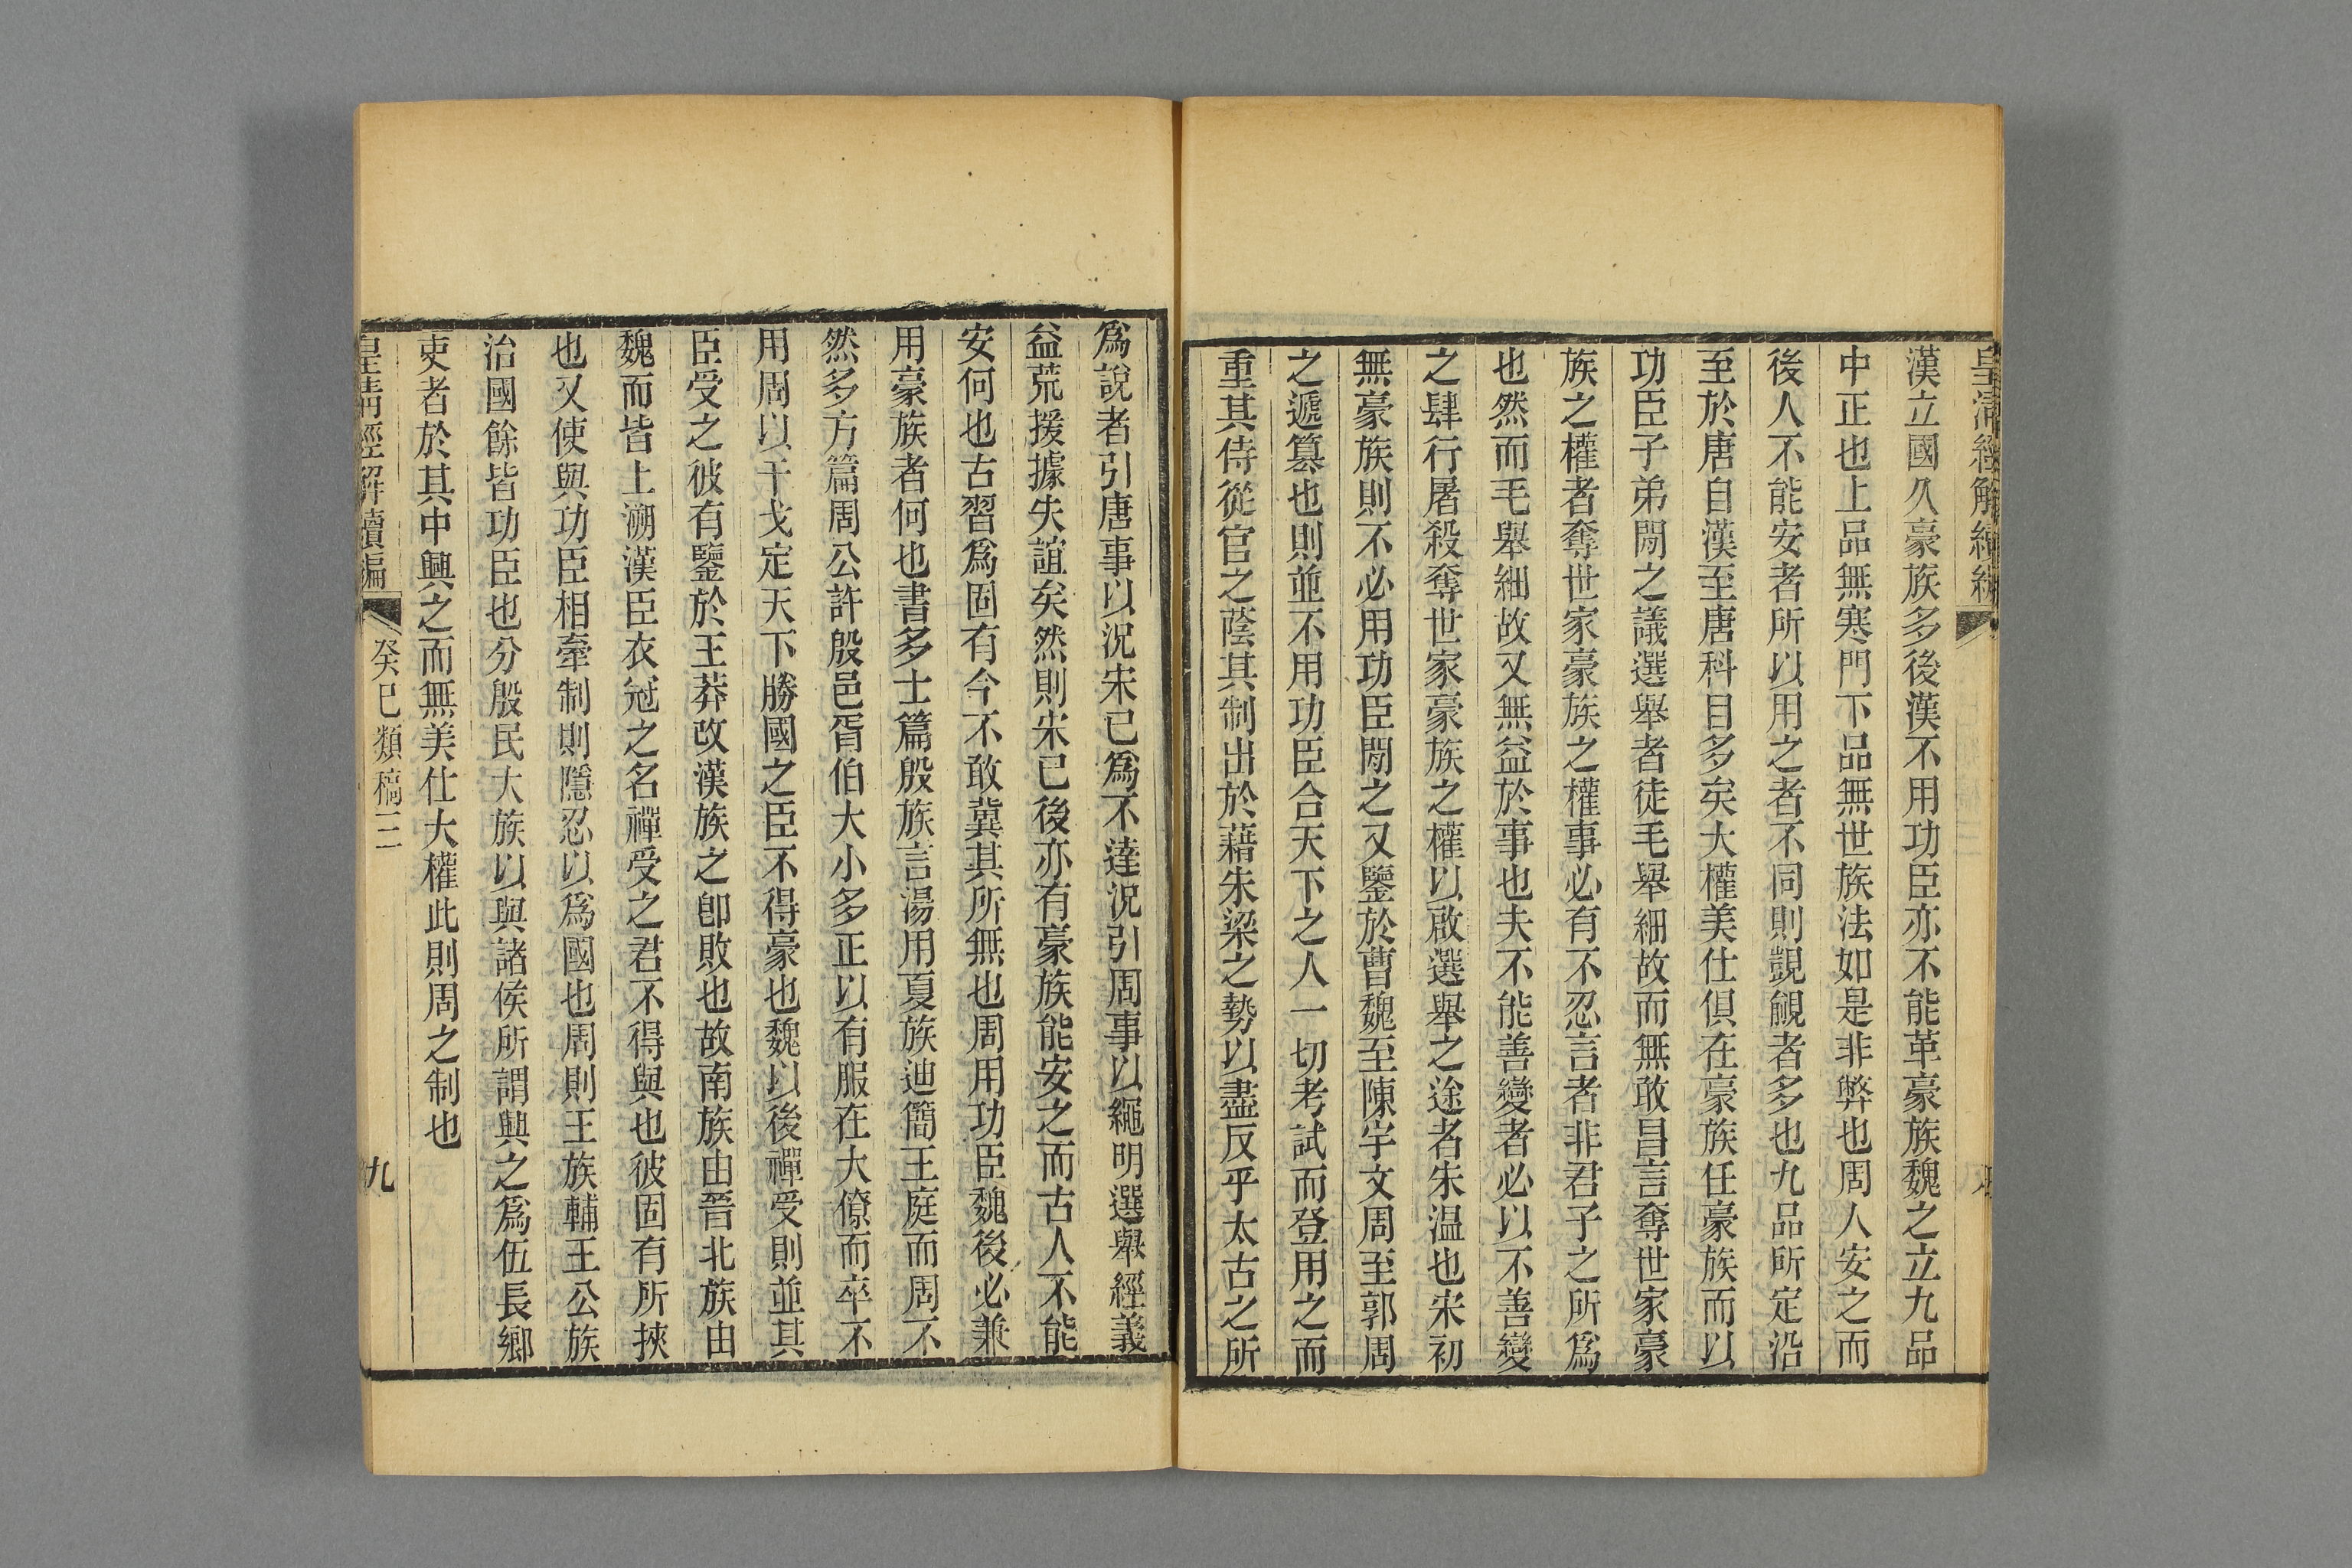 皇清經解續編
漢立國久豪族多後漢不用功臣亦不能革豪族魏之立九品
中正也上品無寒門下品無世族法如是非弊也周人安之而
後人不能安者所以用之者不同則覬覦者多也九品所定沿
至於唐自漢至唐科目多矣大權美仕俱在豪族任豪族而以
功臣子弟閒之議選舉者徒毛舉細故而無敢昌言奪世家豪
族之權者奪世家豪族之權事必有不忍言者非君子之所爲
也然而毛舉細故又無益於事也夫不能善變者必以不善變
之肆行屠殺奪世家豪族之權以啟選舉之途者朱温也宋初
無豪族則不必用功臣閒之又鑒於曹魏至陳宇文周至郭周
之遞篡也則並不用功臣合天下之人一切考試而登用之而
重其侍從官之蔭其制出於藉朱梁之勢以盡反乎太古之所
爲說者引唐事以況宋已爲不達況引周事以繩明選舉經義
益荒援據失誼矣然則宋已後亦有豪族能安之而古人不能
安何也古習爲固有今不敢冀其所無也周用功臣魏後必兼
用豪族者何也書多士篇殷族言湯用夏族迪簡王庭而周不
然多方篇周公許殷邑胥伯大小多正以有服在大僚而卒不
用周以干戈定天下勝國之臣不得豪也魏以後禪受則並其
臣受之彼有鑒於王莽改漢族之卽敗也故南族由晉北族由
魏而皆上溯漢臣衣冠之名禪受之君不得與也彼固有所挾
也又使與功臣相牽制則隱忍以爲國也周則王族輔王公族
治國餘皆功臣也分殷民大族以與諸侯所謂興之爲伍長鄉
吏者於其中興之而無美仕大權此則周之制也
皇淸經解續編
癸巳類稿三
九